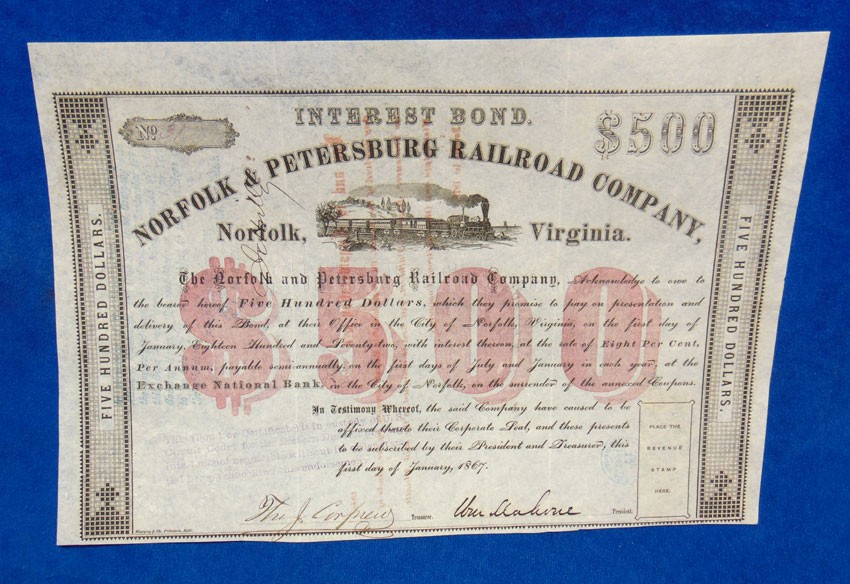 INTEREST BOND.
No.
$500
NORFOLK & PETERSBURG RAILROAD COMPANY,
Norfolk, Virginia.
FIVE HUNDRED DOLLARS.
FIVE HUNDRED DOLLARS.
$500
The Norfolk and Petersburg Railroad Company, Acknowledge to owe to
the bearer hereof Five Hundred Dollars, which they promise to pay on presentation and
delivery of this Bond, at their Office in the City of Norfolk, Virginia, on the first day of
January, Eighteen Hundred and Seventy-two, with interest thereon, at the rate of Eight Per Cent,
Per Annum, payable semi-annually, on the first days of July and January in each year, at the
Exchange National Bank, in the City of Norfolk, on the surrender of the annexed Coupons.
In Testimony Whereof, the said Company have caused to be
affixed thereto their Corporate Seal, and these presents
to be subscribed by their President and Treasurer, this
first day of January, 1867.
PLACE THE
REVENUE
STAMP
HERE.
Tho J. Corprew Treasurer. Wm Mahone President.